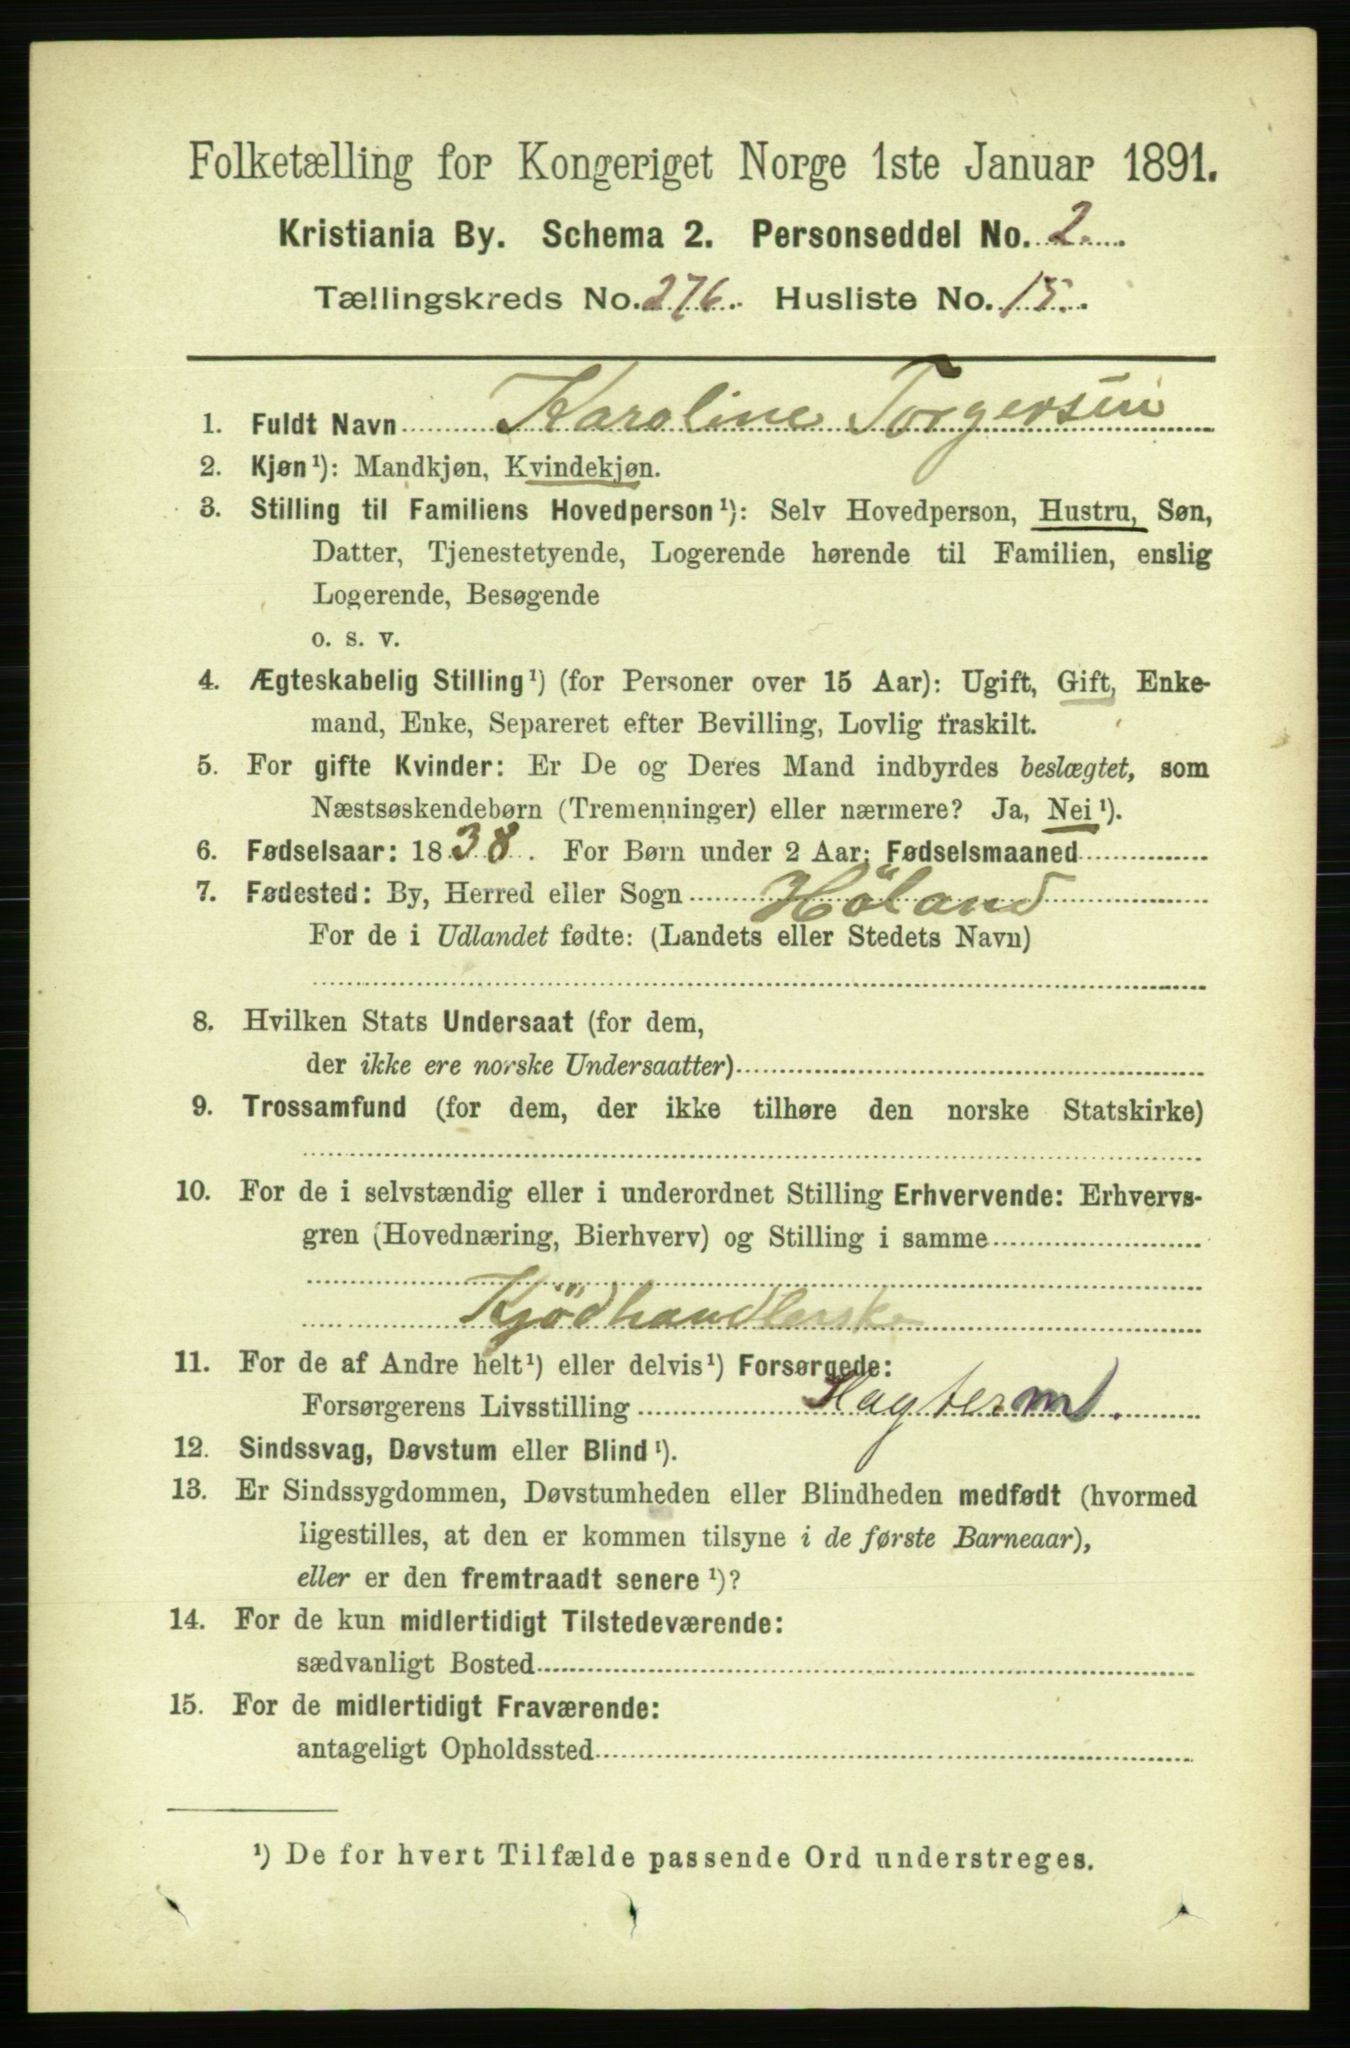 Folketælling for Kongeriget Norge 1ste Januar 1891.
Kristiania By. Schema 2. Personseddel No. 2.
Tællingskreds No. 276. Husliste No. 15.
1. Fuldt Navn Karoline Torgersen
2. Kjøn¹): Mandkjøn, Kvindekjøn.
3. Stilling til Familiens Hovedperson¹): Selv Hovedperson, Hustru, Søn,
Datter, Tjenestetyende, Logerende hørende til Familien, enslig
Logerende, Besøgende
o. s. v.
4. Ægteskabelig Stilling¹) (for Personer over 15 Aar): Ugift, Gift, Enke-
mand, Enke, Separeret efter Bevilling, Lovlig fraskilt.
5. For gifte Kvinder: Er De og Deres Mand indbyrdes beslægtet, som
Næstsøskendebørn (Tremenninger) eller nærmere? Ja, Nei¹).
6. Fødselsaar: 1838. For Børn under 2 Aar: Fødselsmaaned
7. Fødested: By, Herred eller Sogn Höland
For de i Udlandet fødte: (Landets eller Stedets Navn)
8. Hvilken Stats Undersaat (for dem,
der ikke ere norske Undersaatter)
9. Trossamfund (for dem, der ikke tilhøre den norske Statskirke)
10. For de i selvstændig eller i underordnet Stilling Erhvervende: Erhvervs-
gren (Hovednæring, Bierhverv) og Stilling i samme
Kjödhandlerske
11. For de af Andre helt¹) eller delvis¹) Forsørgede:
Forsørgerens Livsstilling Slagterm.
12. Sindssvag, Døvstum eller Blind¹).
13. Er Sindssygdommen, Døvstumheden eller Blindheden medfødt (hvormed
ligestilles, at den er kommen tilsyne i de første Barneaar),
eller er den fremtraadt senere¹)?
14. For de kun midlertidigt Tilstedeværende:
sædvanligt Bosted
15. For de midlertidigt Fraværende:
antageligt Opholdssted
¹) De for hvert Tilfælde passende Ord understreges.